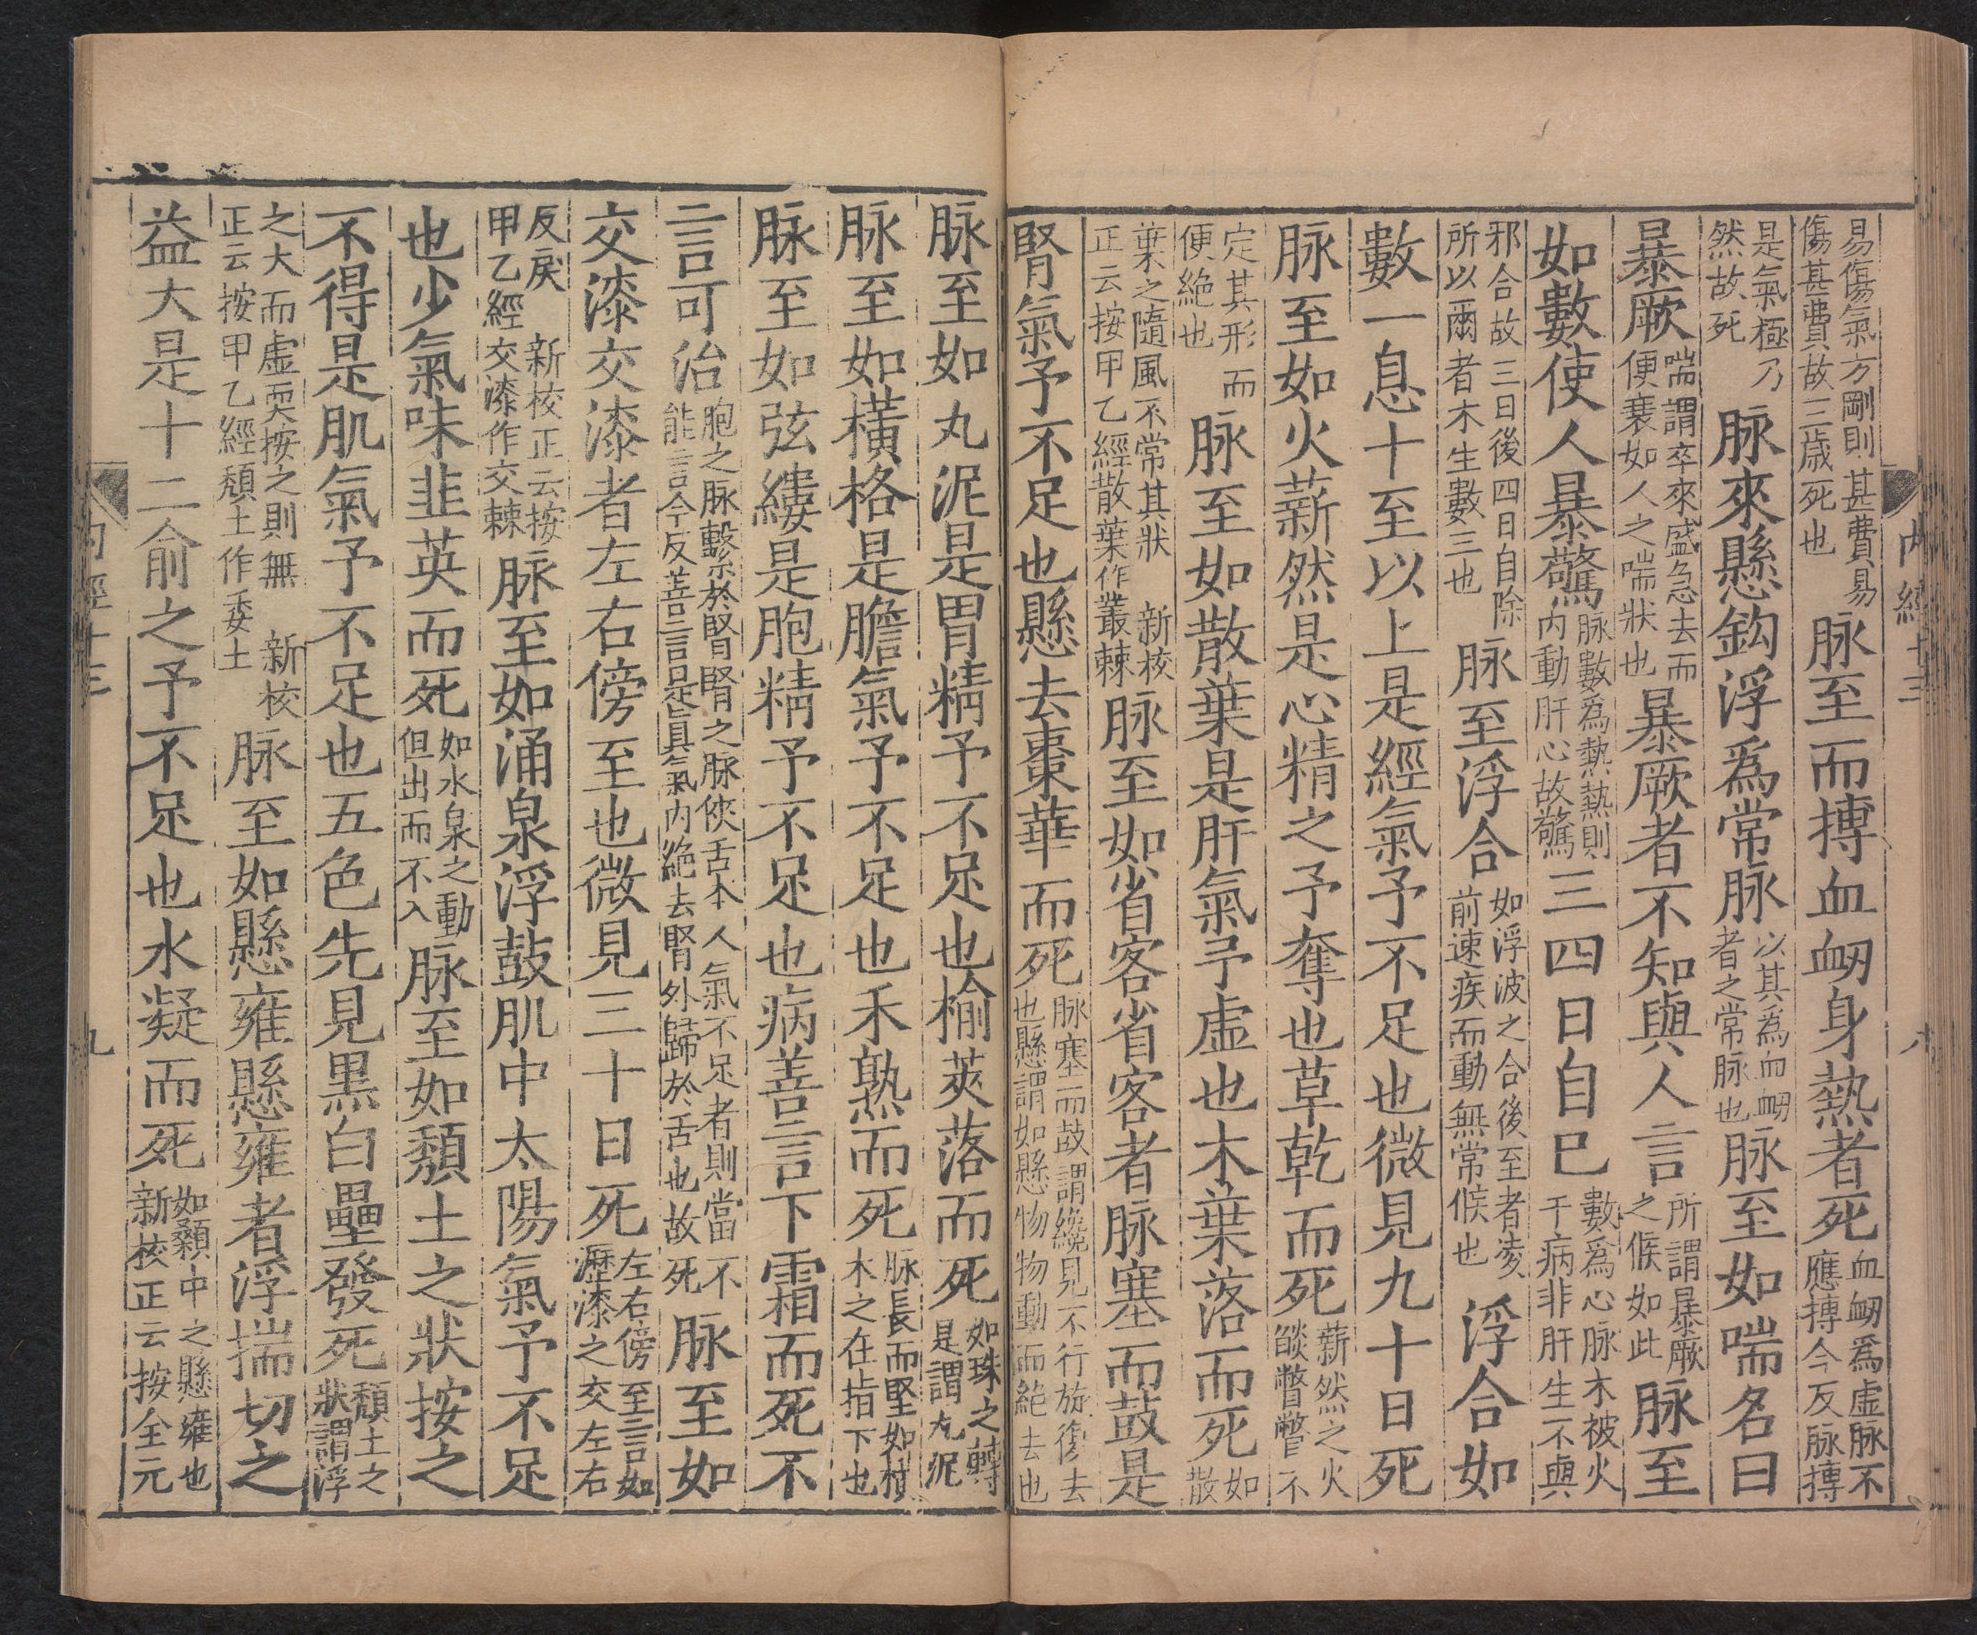 易傷氣方剛則甚費易
傷甚費故三歲死也
脉至而搏血衂身熱者死
血衂爲虛脉不
應搏今反脉搏
是氣極乃
然故死
脉來懸鈎浮爲常脉
以其爲血衂
者之常脉也
脉至如喘名曰
暴厥
喘謂卒來盛急去而
便衰如人之喘狀也
暴厥者不知與人言
所謂暴厥
之候如此
脉至
如數使人暴驚
脉數爲熱熱則
内動肝心故驚
三四日自已
數爲心脉木被火
干病非肝生不與
邪合故三日後四日自除
所以爾者木生數三也
脉至浮合
如浮波之合後至者凌
前速疾而動無常候也
浮合如
數一息十至以上是經氣予不足也微見九十日死
脉至如火薪然是心精之予奪也草乾而死
薪然之火
燄瞥瞥不
定其形而
便絶也
脉至如散葉是肝氣予虛也木葉落而死
如
散
葉之隨風不常其狀 新校
正云按甲乙經散葉作叢棘
脉至如省客省客者脉塞而鼓是
腎氣予不足也懸去棗華而死
脉塞而鼓謂纔見不行旋復去
也懸謂如懸物物動而絶去也
内經十三
八
脉至如丸泥是胃精予不足也榆莢落而死
如珠之轉
是謂丸泥
脉至如橫格是膽氣予不足也禾熟而死
脉長而堅如横
木之在指下也
脉至如弦縷是胞精予不足也病善言下霜而死不
言可治
胞之脉繫於腎腎之脉俠舌本人氣不足者則當不
能言今反善言是眞氣内絶去腎外歸於舌也故死
脉至如
交漆交漆者左右傍至也微見三十日死
左右傍至言如
瀝漆之交左右
反戾 新校正云按
甲乙經交漆作交棘
脉至如涌泉浮鼓肌中太陽氣予不足
也少氣味韭英而死
如水泉之動
但出而不入
脉至如頹土之狀按之
不得是肌氣予不足也五色先見黒白壘發死
頹土之
狀謂浮
之大而虛耎按之則無 新校
正云按甲乙經頹土作委土
脉至如懸雍懸雍者浮揣切之
益大是十二俞之予不足也水凝而死
如顙中之懸雍也
新校正云按全元
内經十三
九